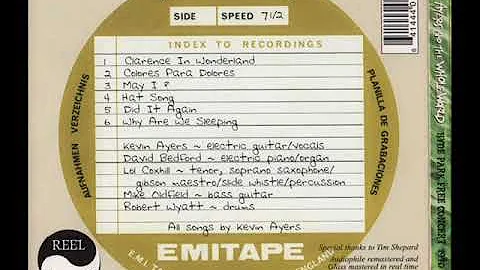 SIDE SPEED 7 1/2
INDEX TO RECORDINGS
1 Clarence In Wonderland
2 Colores Para Dolores
3 May I ?
4 Hat Song
5 Did It Again
6 Why Are We Sleeping
Kevin Ayers ~ electric guitar/vocals
David Bedford ~ electric piano/organ
Lol Coxhill ~ tenor, soprano saxophone/
gibson maestro/slide whistle/percussion
Mike Oldfield ~ bass guitar
Robert Wyatt ~ drums
All songs by Kevin Ayers
EMITAPE
AUFNAHMEN VERZEICHNIS
PLANILLA DE GRABACIONES
REEL
Special thanks to Tim Shepard
Audiophile remastered and
Glass mastered in real time
THE WHOLE WORLD
HYDE PARK FREE CONCERT
6 41444 0